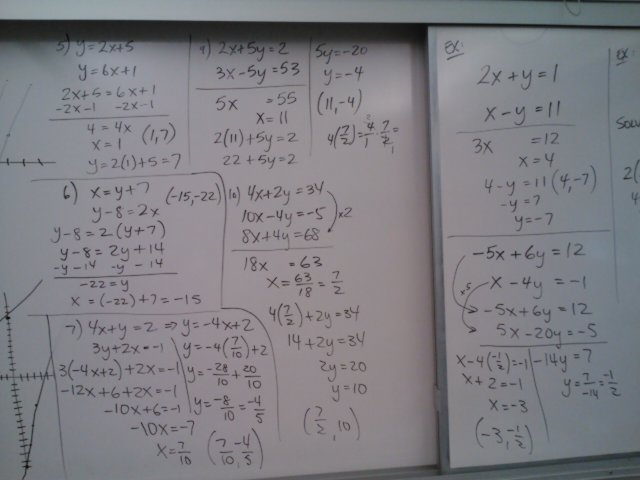 5) y = 2x+5
y = 6x+1
2x+5 = 6x+1
-2x-1 -2x-1
4 = 4x
x = 1
(1,7)
y = 2(1)+5 = 7
6) x = y+7 (-15,-22)
y-8 = 2x
y-8 = 2(y+7)
y-8 = 2y+14
-y-14 -y-14
-22 = y
x = (-22)+7 = -15
7) 4x+y = 2 ⇒ y = -4x+2
3y+2x = -1
3(-4x+2)+2x = -1
-12x+6+2x = -1
-10x+6 = -1
-10x = -7
x = 7/10
y = -4(7/10)+2
y = -28/10 + 20/10
y = -8/10 = -4/5
(7/10, -4/5)
9) 2x+5y = 2
3x-5y = 53
5x = 55
x = 11
2(11)+5y = 2
22+5y = 2
5y = -20
y = -4
(11,-4)
10) 4x+2y = 34
10x-4y = -5
x2
8x+4y = 68
18x = 63
x = 63/18 = 7/2
4(7/2)+2y = 34
14+2y = 34
2y = 20
y = 10
(7/2, 10)
EX:
2x+y = 1
x-y = 11
3x = 12
x = 4
4-y = 11 (4,-7)
-y = 7
y = -7
-5x+6y = 12
x-4y = -1
x5
-5x+6y = 12
5x-20y = -5
-14y = 7
y = 7/-14 = -1/2
x-4(-1/2) = -1
x+2 = -1
x = -3
(-3, -1/2)
EX: